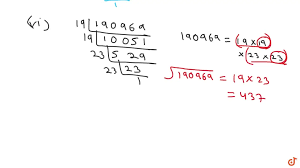 (vi) 19 | 190969 190969 = 19 × 19
19 | 10051 × 23 × 23
23 | 529
23 | 23 √190969 = 19 × 23
1 = 437